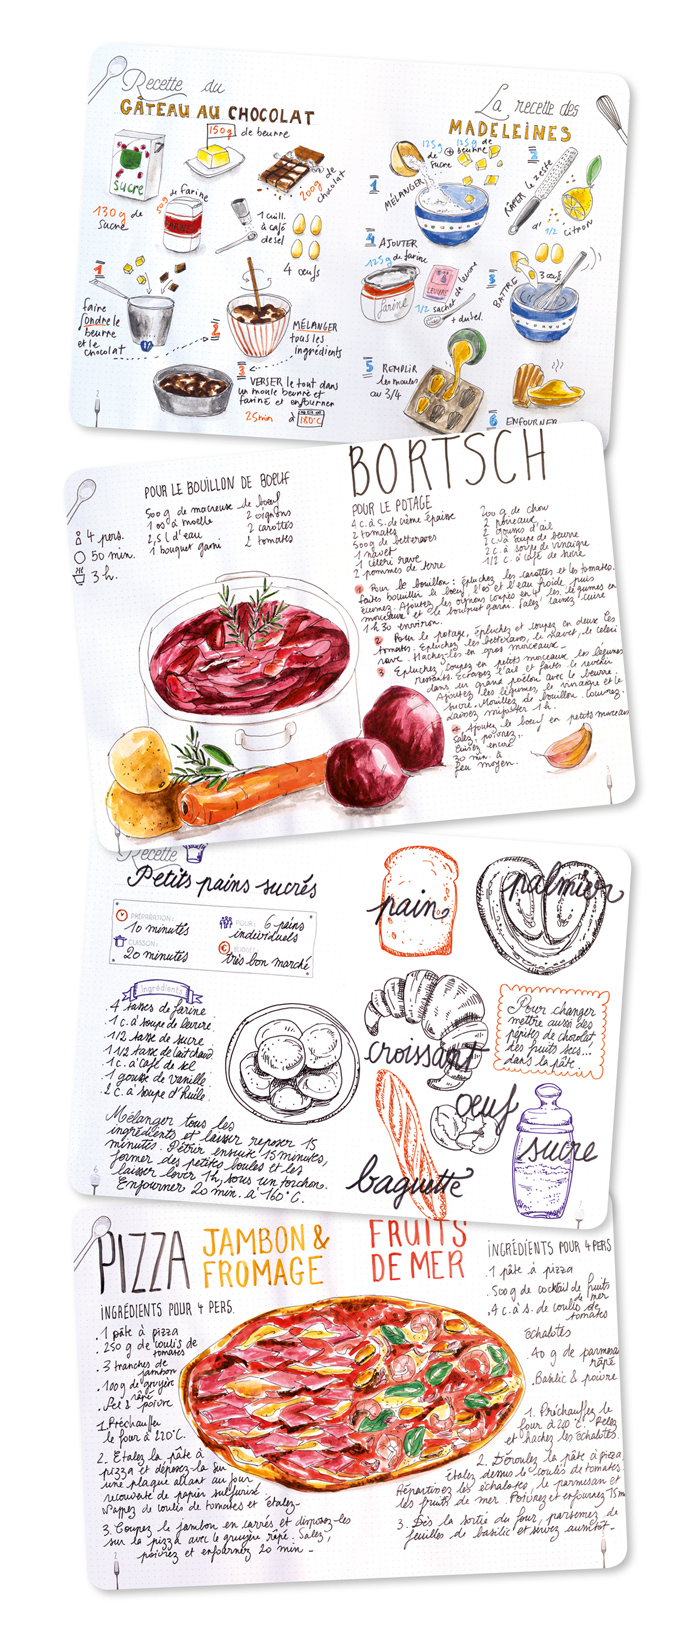 Recette du
GÂTEAU AU CHOCOLAT
150g de beurre
sucre
130g de sucre
50g de farine
FARINE
1 cuill. à café de sel
200g de chocolat
4 œufs
1
faire fondre le
beurre
et le
chocolat
2
MÉLANGER
tous les
ingrédients
3
VERSER le tout dans
un moule beurré et
fariné et enfourner
25min à 180°C
2
La recette des
MADELEINES
1
125g de sucre
+
125g de beurre
MÉLANGER
2
RÂPER le zeste
de 1/2 citron
4 AJOUTER
125g de farine
farine
LEVURE
1/2 sachet de levure
+ du sel
3
BATTRE
3 œufs
5 REMPLIR
les moules
au 3/4
6 ENFOURNER
POUR LE BOUILLON DE BŒUF
500 g de macreuse de bœuf
1 os à moelle
2,5 L d'eau
1 bouquet garni
2 oignons
2 carottes
2 tomates
4 pers.
50 min.
3 h.
BORTSCH
POUR LE POTAGE
4 c. à s. de crème épaisse
2 tomates
500g de betteraves
1 navet
1 céleri rave
2 pommes de terre
200 g de chou
2 poireaux
2 gousses d'ail
1 c. à soupe de beurre
2 c. à soupe de vinaigre
1/2 c. à café de sucre
1 Pour le bouillon : Épluchez les carottes et les tomates.
faites bouillir le bœuf, l'os et l'eau froide puis
écumez. Ajoutez les oignons coupés en 4, les légumes en
morceaux et le bouquet garni. Salez. Laissez cuire
1 h 30 environ.
2 Pour le potage, épluchez et coupez en deux les
tomates. Épluchez les betteraves, le navet, le céleri
rave. Hachez-les en gros morceaux.
3 Épluchez, coupez en petits morceaux les légumes
restants. Écrasez l'ail et faites le revenir
dans un grand poêlon avec le beurre.
Ajoutez les légumes, le vinaigre et le
sucre. Mouillez de bouillon. Couvrez.
Laissez mijoter 1 h.
4 Ajoutez le bœuf en petits morceaux
salez, poivrez,
laissez encore
30 min. à
feu moyen.
3
Recette
Petits pains sucrés
PRÉPARATION :
10 minutes
POUR :
6 pains
individuels
CUISSON :
20 minutes
BUDGET :
très bon marché
Ingrédients
4 tasses de farine
1 c. à soupe de levure
1/2 tasse de sucre
1 1/2 tasse de lait chaud
1 c. à café de sel
1 gousse de vanille
2 c. à soupe d'huile
Mélanger tous les
ingrédients et laisser reposer 15
minutes. Pétrir ensuite 15 minutes,
former des petites boules et les
laisser lever 1h, sous un torchon.
Enfourner 20 min. à 160°C.
6
pain
palmier
croissant
Pour changer
mettre aussi des
pépites de chocolat,
des fruits secs...
dans la pâte.
œuf
baguette
sucre
PIZZA
JAMBON &
FROMAGE
INGRÉDIENTS POUR 4 PERS.
. 1 pâte à pizza
. 250 g de coulis de
tomates
. 3 tranches de
jambon
. 100 g de gruyère
râpé
. Sel & poivre
1. Préchauffer
le four à 220°C.
2. Étalez la pâte à
pizza et déposez-la sur
une plaque allant au four
recouverte de papier sulfurisé.
Nappez de coulis de tomates et étalez.
3. Coupez le jambon en carrés et disposez-les
sur la pizza avec le gruyère râpé. Salez,
poivrez et enfournez 20 min.
2
FRUITS
DE MER
INGRÉDIENTS POUR 4 PERS
. 1 pâte à pizza
. 500g de cocktail de fruits
de mer
. 4 c. à s. de coulis de
tomates
échalotes
. 40 g de parmesan
râpé
. Basilic & poivre
1. Préchauffez le
four à 220°C. Pelez
et hachez les échalotes.
2. Déroulez la pâte à pizza.
Étalez dessus le coulis de tomates.
Répartissez les échalotes, le parmesan et
les fruits de mer. Poivrez et enfournez 15 m
3. Dès la sortie du four, parsemez de
feuilles de basilic et servez aussitôt.